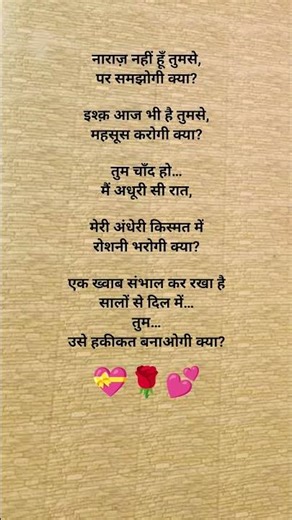 नाराज़ नहीं हूँ तुमसे,
पर समझोगी क्या?
इश्क़ आज भी है तुमसे,
महसूस करोगी क्या?
तुम चाँद हो...
मैं अधूरी सी रात,
मेरी अंधेरी किस्मत में
रोशनी भरोगी क्या?
एक ख्वाब संभाल कर रखा है
सालों से दिल में...
तुम...
उसे हकीकत बनाओगी क्या?
💝🌹💕